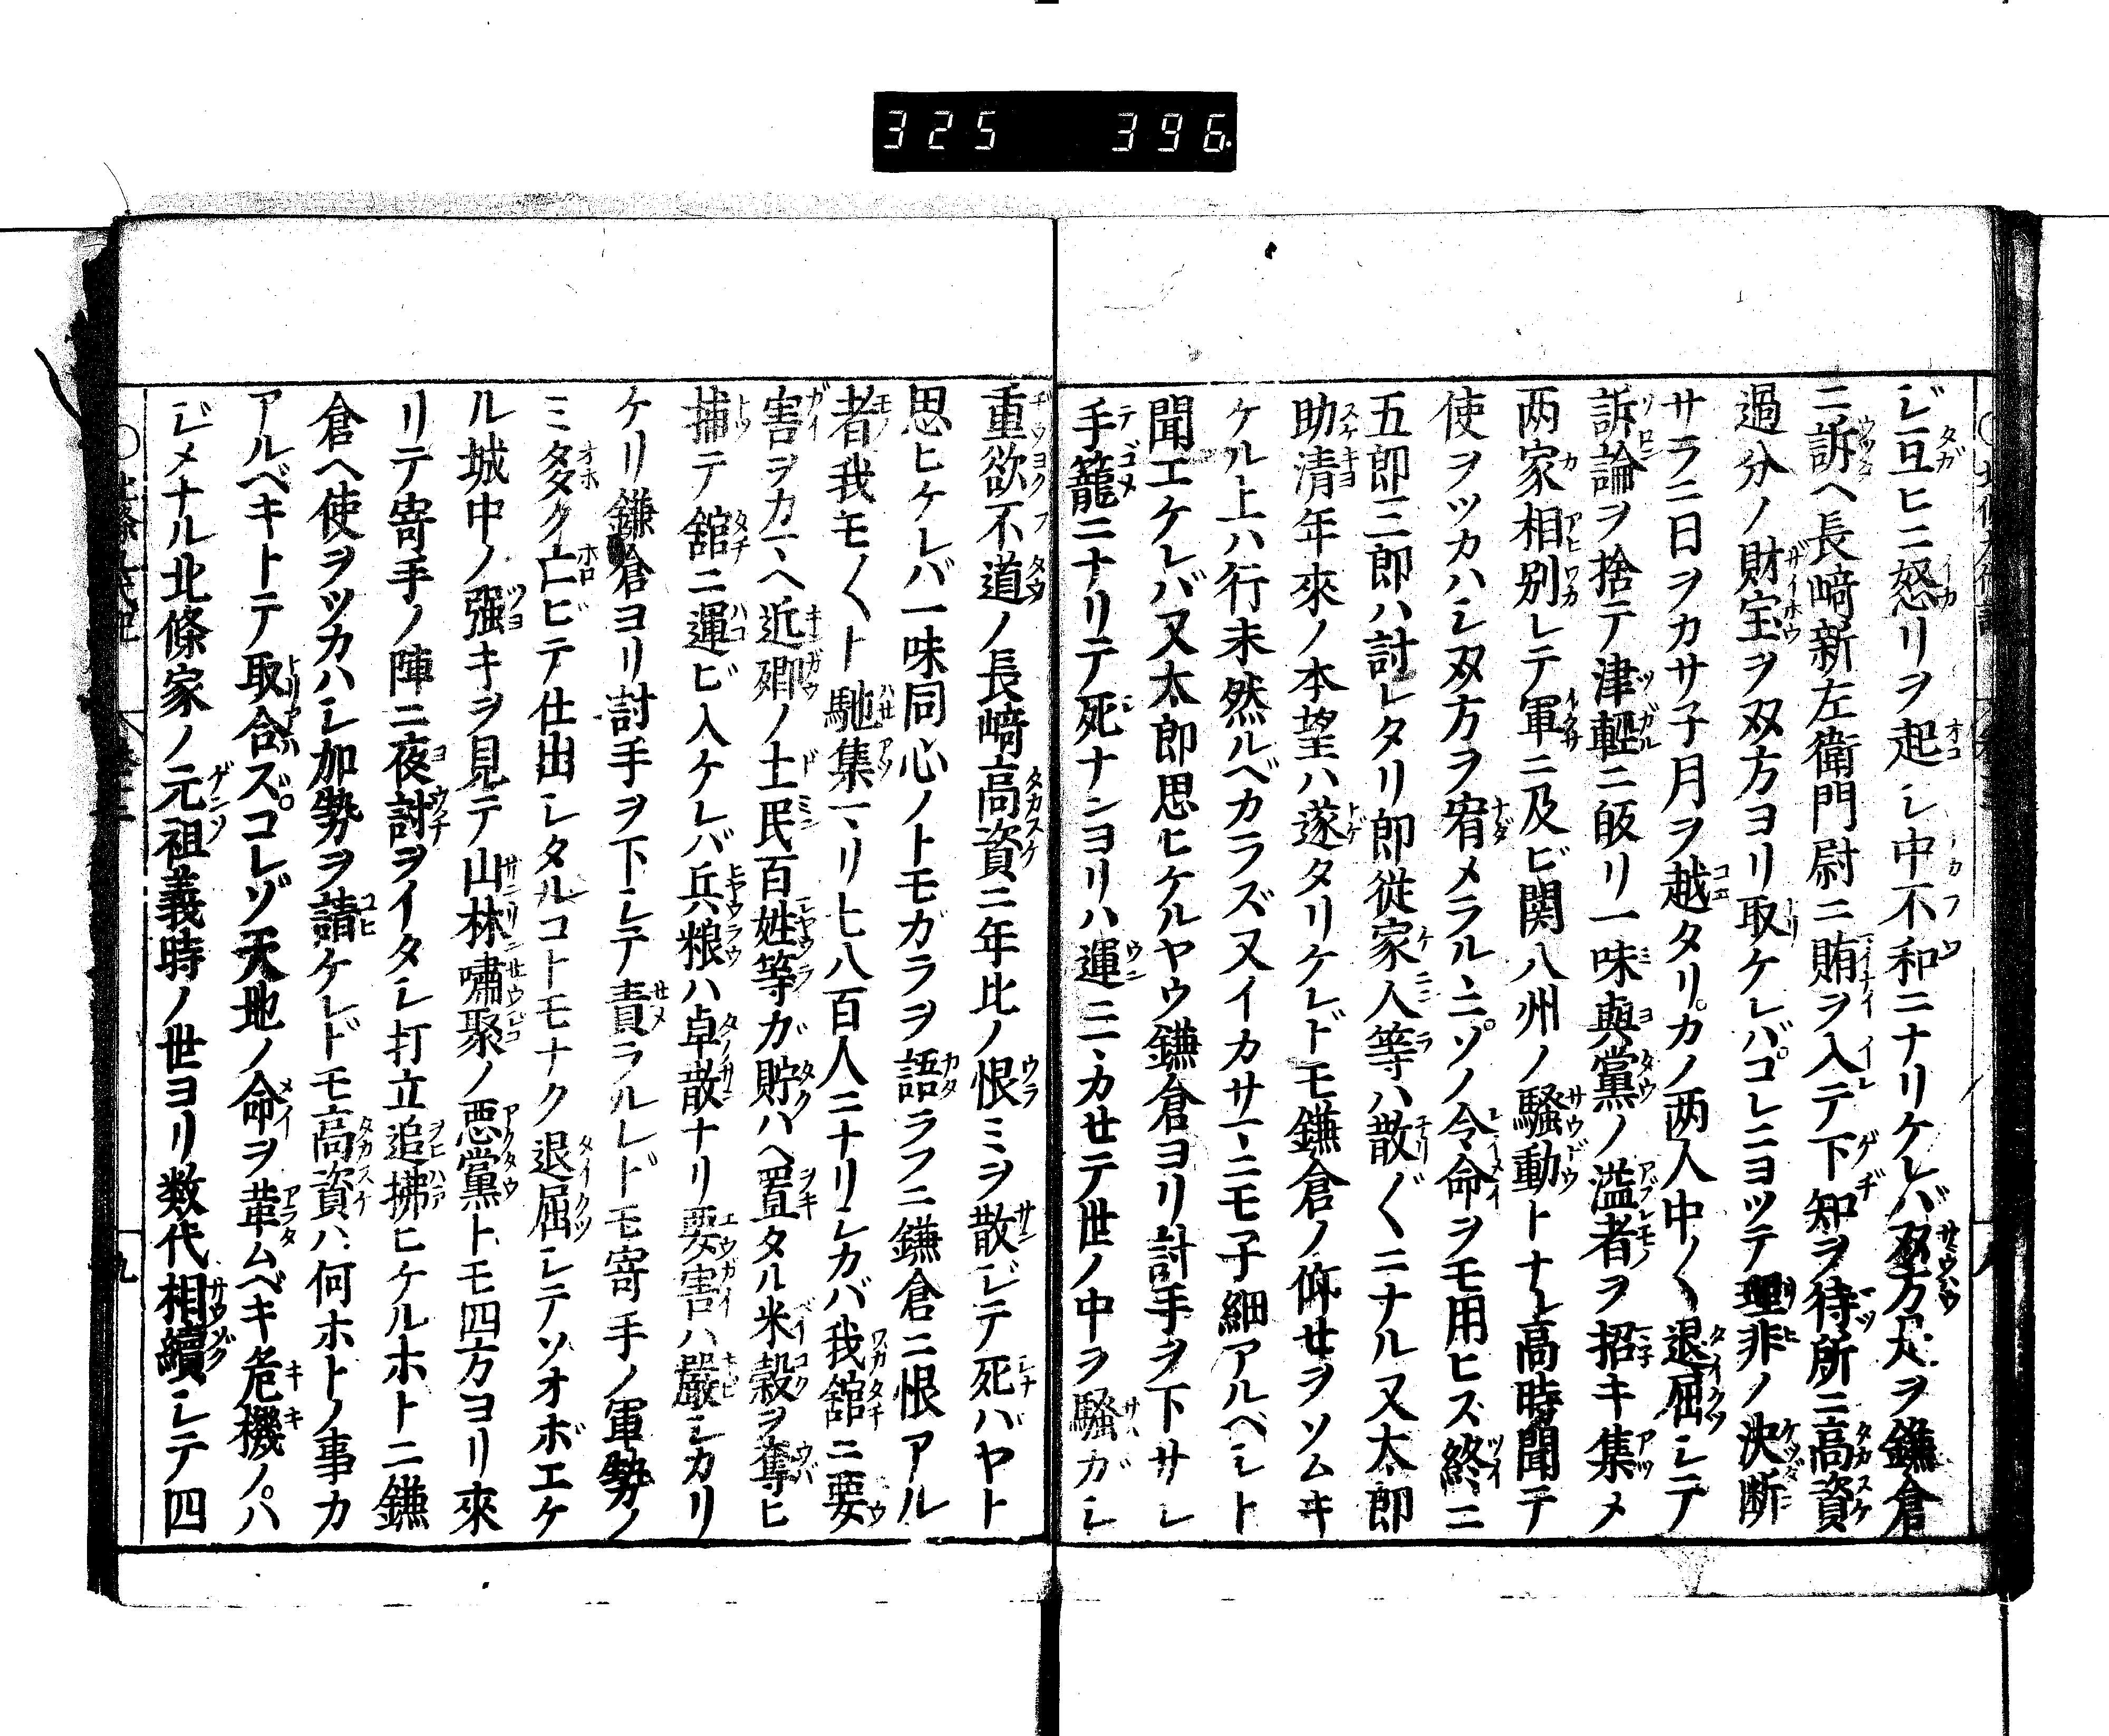 325 396
ジ互ヒニ怒リヲ起シ中不和ニナリケレバ双方丈ヲ鎌倉
ニ訴ヘ長﨑新左衛門尉ニ賄ヲ入テ下知ヲ待所ニ高資
過分ノ財宝ヲ双方ヨリ取ケレバコレニヨツテ理非ノ決断
サラニ日ヲカサ子月ヲ越タリカノ两人中〱退屈シテ
訴論ヲ捨テ津輕ニ皈リ一味與黨ノ溢者ヲ招キ集メ
两家相別レテ軍ニ及ビ関八州ノ騒動トナル高時聞テ
使ヲツカハシ双方ヲ宥メラルヽニソノ令命ヲモ用ヒズ終ニ
五郎三郎ハ討レタリ郎従家人等ハ散〲ニナル又太郎
助清年來ノ本望ハ遂タリケレドモ鎌倉ノ仰せヲソムキ
ケル上ハ行末然ルベカラズ又イカサマニモ子細アルベシト
聞エケレバ又太郎思ヒケルヤウ鎌倉ヨリ討手ヲ下サレ
手籠ニナリテ死ナンヨリハ運ニマカせテ世ノ中ヲ騒ガシ
重欲不道ノ長﨑高資ニ年比ノ恨ミヲ散ジテ死バヤト
思ヒケレバ一味同心ノトモガラヲ語ラフニ鎌倉ニ恨アル
者我モ〱ト馳集マリ七八百人ニナリシカバ我舘ニ要
害ヲカマヘ近郷ノ土民百姓等ガ貯ハヘ置タル米穀ヲ奪ヒ
捕テ舘ニ運ビ入ケレバ兵粮ハ卓散ナリ要害ハ嚴シカリ
ケリ鎌倉ヨリ討手ヲ下シテ責ラルレドモ寄手ノ軍勢ノ
ミ多ク亡ビテ仕出シタルコトモナク退屈シテソオボエケ
ル城中ノ强キヲ見テ山林嘯聚ノ悪黨トモ四方ヨリ來
リテ寄手ノ陣ニ夜討ヲイタシ打立追拂ヒケルホトニ鎌
倉ヘ使ヲツカハシ加勢ヲ請ケレドモ高資ハ何ホトノ事カ
アルベキトテ取合ズコレゾ天地ノ命ヲ革ムベキ危機ノハ
ジメナル北條家ノ元祖義時ノ世ヨリ数代相續シテ四
九